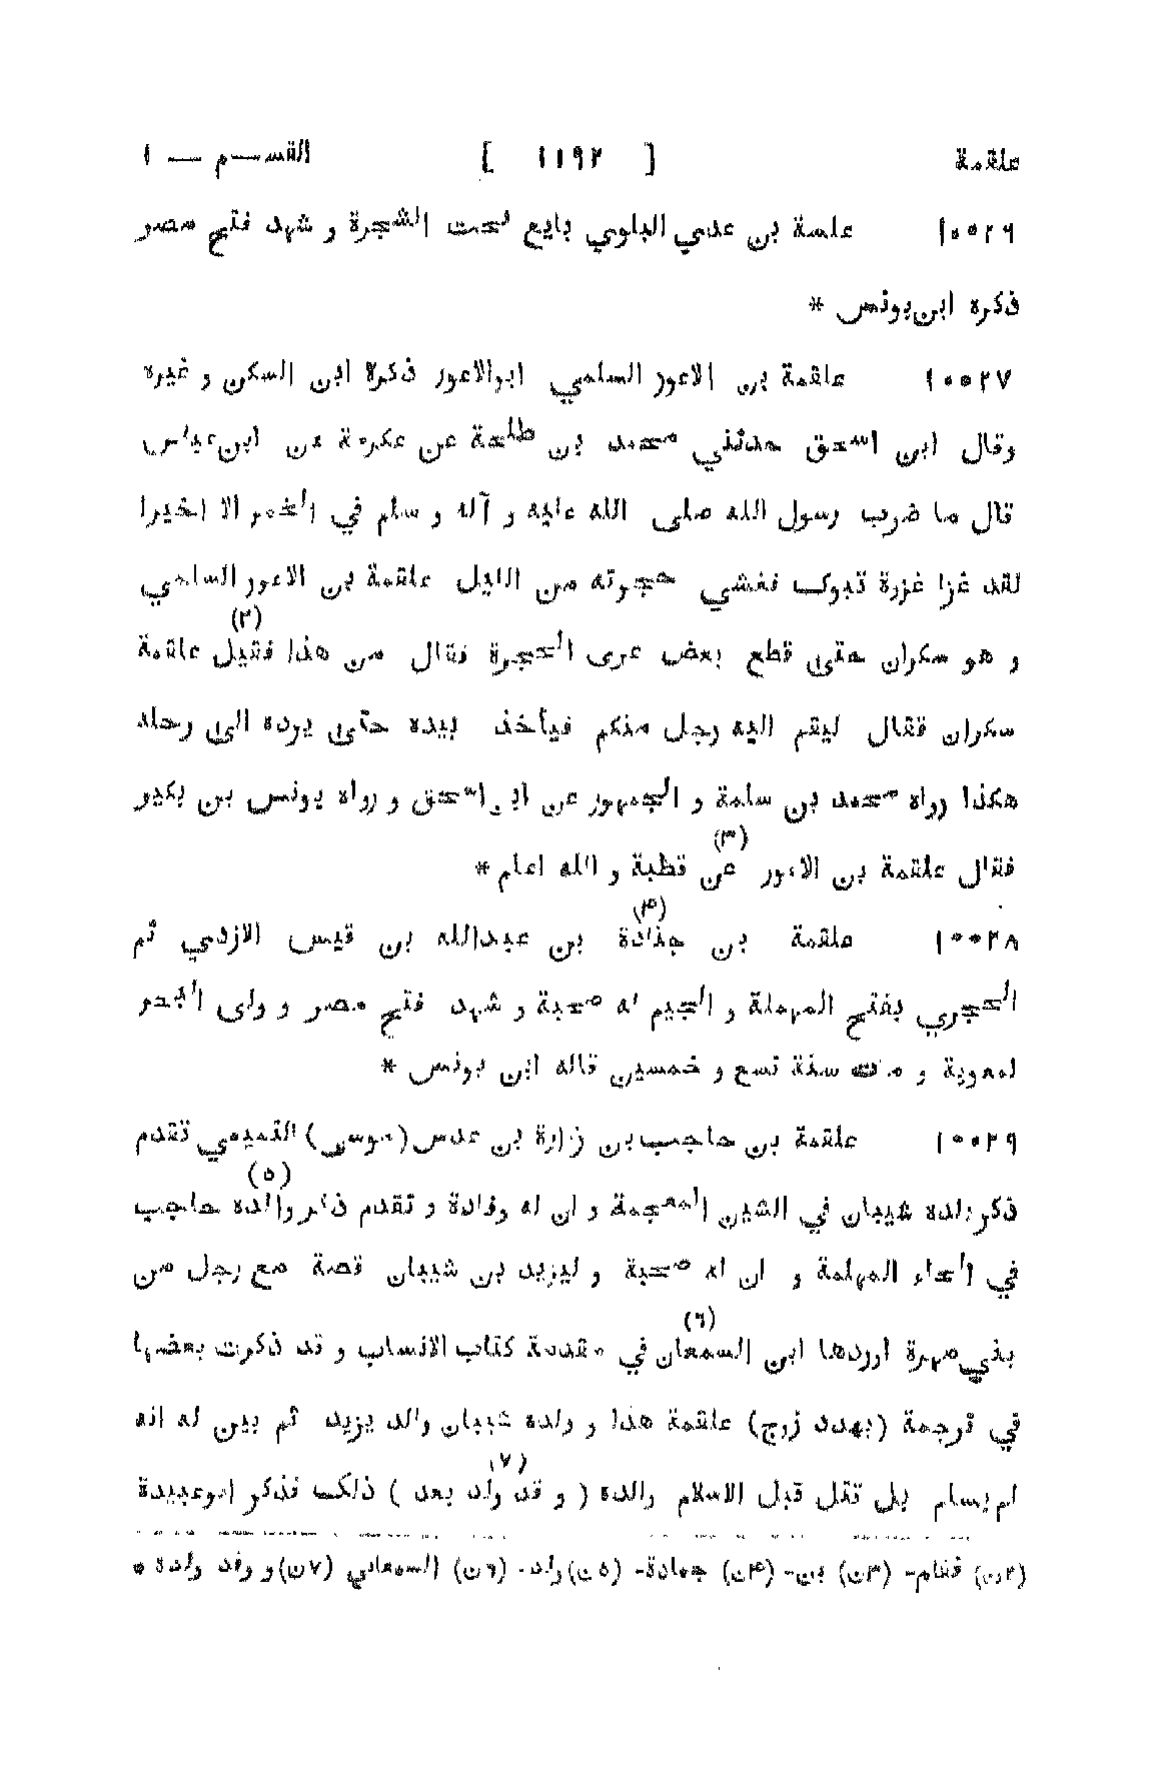 علقمة [ ١١٩٢ ] القسـم — ١
١٠٥٢٦ علسة بن عدي البلوي بايع تحت الشجرة و شهد فتح مصر
ذكره ابن يونس *
١٠٥٢٧ علقمة بن الاعور السلمي ابوالاعور ذكرة ابن السكن و غيره
وقال ابن اسحق حدثني محمد بن طلحة عن عكرمة عن ابن عباس
قال ما ضرب رسول الله صلى الله عليه و آله و سلم في الخمر الا اخيرا
لقد غزا غزرة تبوك فغشي حجرته من الليل علقمة بن الاعور السلمي
و هو سكران حتى قطع بعض عرى الحجرة فقال من هذا فقيل (٢) علقمة
سكران فقال ليقم اليه رجل منكم فيأخذ بيده حتى يرده الى رحله
هكذا رواه محمد بن سلمة و الجمهور عن ابن اسحق و رواه يونس بن بكير
فقال علقمة بن الاعور عن (٣) قطبة و الله اعلم *
١٠٥٢٨ علقمة بن جنادة (٤) بن عبدالله بن قيس الازدي ثم
الحجري بفتح المهملة و الجيم له صحبة و شهد فتح مصر و ولى البحر
لمعوية و مات سنة تسع و خمسين قاله ابن يونس *
١٠٥٢٩ علقمة بن حاجب بن زرارة بن عدس (موسى) التميمي تقدم
ذكر ولده شيبان في الشين المعجمة و ان له وفادة و تقدم ذكر والده (٥) حاجب
في الحاء المهلمة و ان له صحبة و ليزيد بن شيبان قصة مع رجل من
بني مهرة اوردها ابن السمعان (٦) في مقدمة كتاب الانساب و قد ذكرت بعضها
في ترجمة (بهدد زوج) علقمة هذا و ولده شيبان والد يزيد ثم بين له انه
لم يسلم بل تقل قبل الاسلام والده ( و قد ولد (٧) بعد ) ذلك فذكر ابوعبيدة
(٢ن) فقام- (٣ن) بن- (٤ن) جمادة- (٥ن) ولد- (٦ن) السمعاني (٧ن) و وفد ولدة *